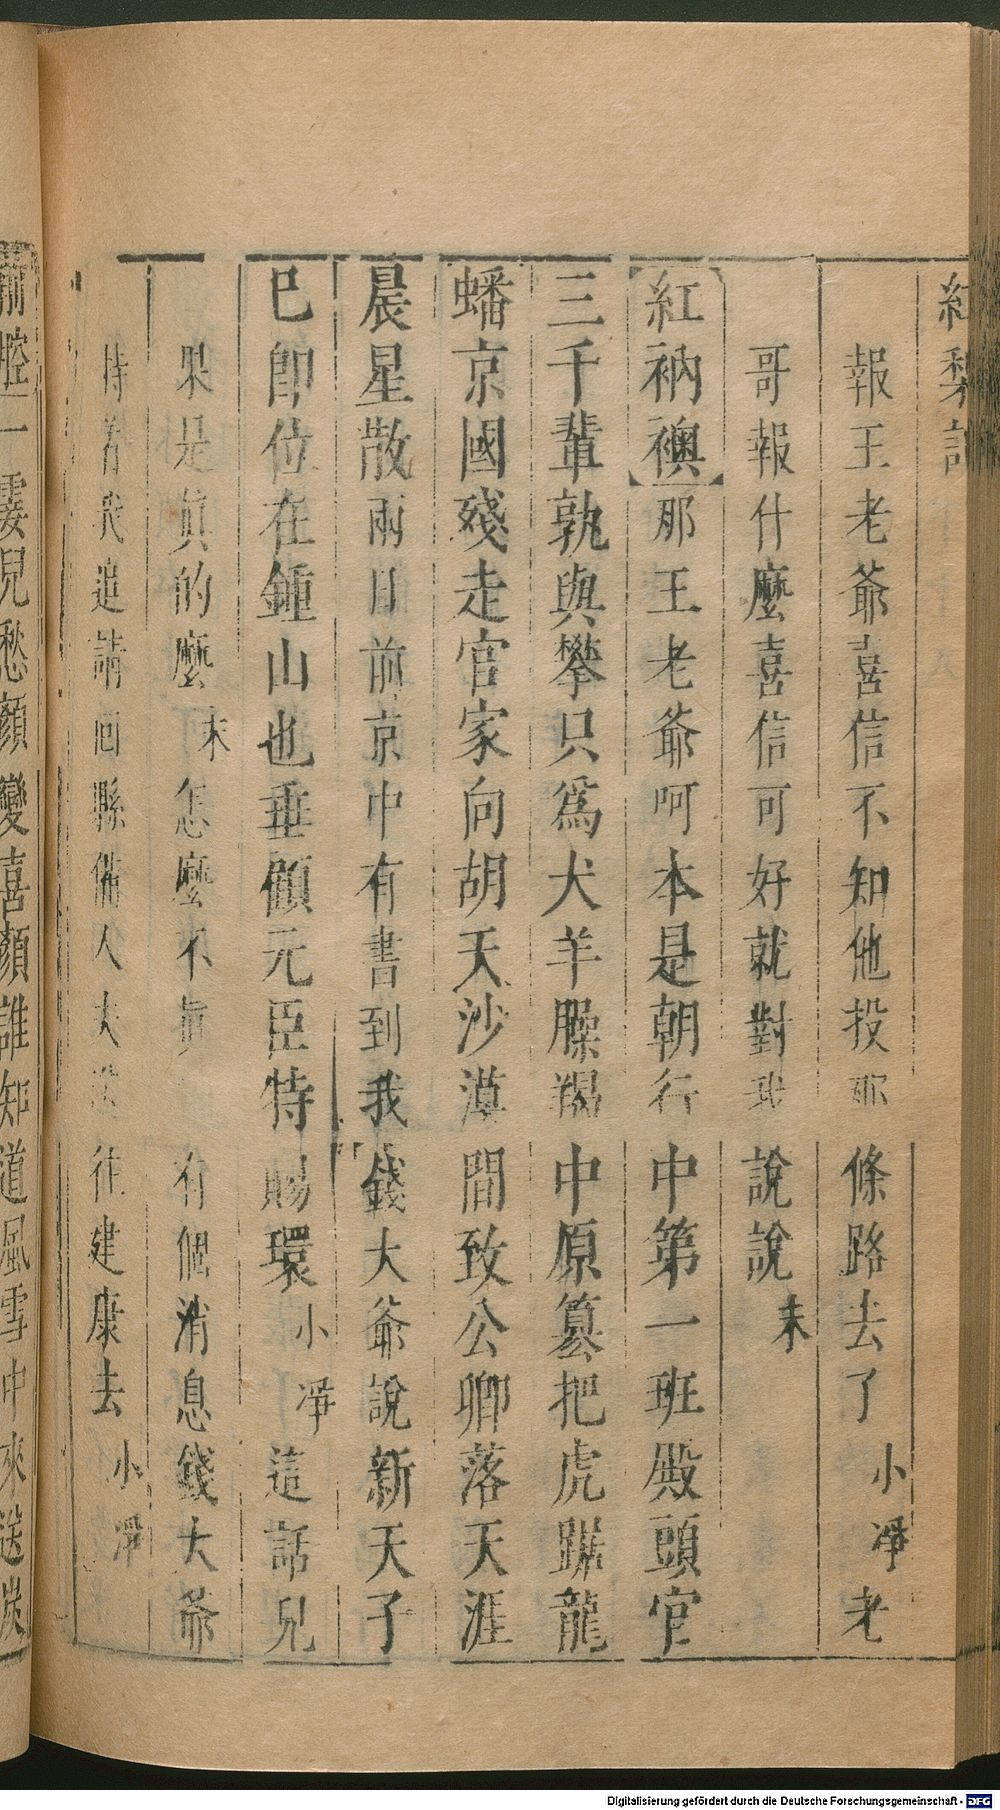 紅梨記
報王老爺喜信不知他投那條路去了小淨老
哥報什麼喜信可好就對我說說末
紅衲襖那王老爺呵本是朝行中第一班殿頭官
三千輩孰與攀只爲犬羊臊羯中原篡把虎踞龍
蟠京國殘走官家向胡天沙漠間致公卿落天涯
晨星散兩日前京中有書到我錢大爺說新天子
已卽位在鍾山也垂顧元臣特賜環小淨這話兒
果是眞的麼末怎麼不眞有個消息錢大爺
特着我追請回縣備人夫送往建康去小淨
前腔一霎兒愁顏變喜顏誰知道風雪中來送炭
Digitalisierung gefördert durch die Deutsche Forschungsgemeinschaft - DFG